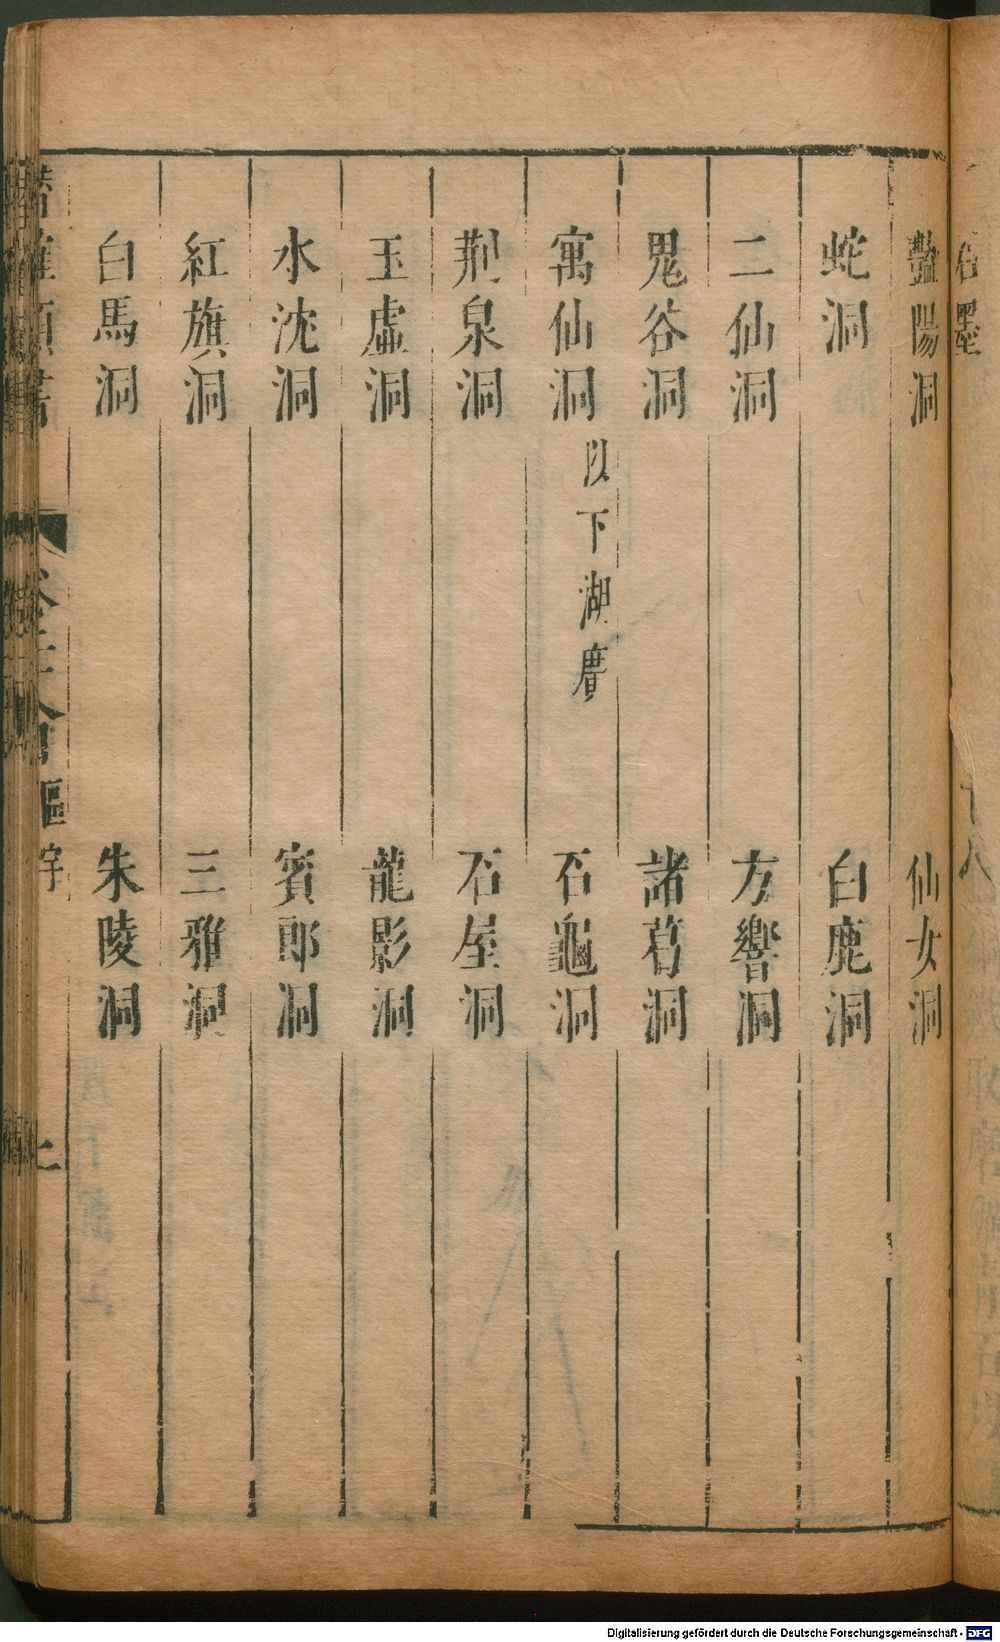 艷陽洞 仙女洞
蛇洞 白鹿洞
二仙洞 方響洞
鬼谷洞 諸葛洞
寓仙洞 以下湖廣 石龜洞
荆泉洞 石屋洞
玉虛洞 龍影洞
水沈洞 賓郎洞
紅旗洞 三雅洞
白馬洞 朱陵洞
Digitalisierung gefördert durch die Deutsche Forschungsgemeinschaft - DFG